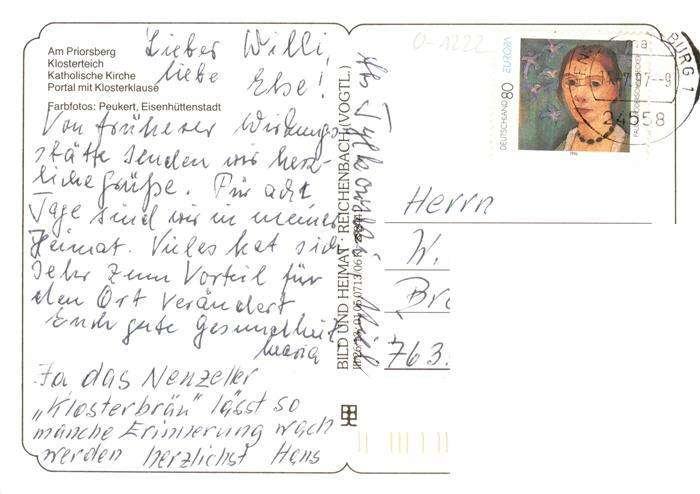 Am Priorsberg
Klosterteich
Katholische Kirche
Portal mit Klosterklause
Farbfotos: Peukert, Eisenhüttenstadt
Lieber Willi,
liebe Else!
Von früherer Wirkungs-
stätte senden wir herz-
liche Grüße. Für acht
Tage sind wir in meiner
Heimat. Vieles hat sich
sehr zum Vorteil für
den Ort verändert
Euch gute Gesundheit
Maria
Ja das Nenzeller
„Klosterbräu" lässt so
manche Erinnerung wach
werden herzlichst Hans
BILD UND HEIMAT · REICHENBACH (VOGTL.)
0-1222
DEUTSCHLAND 80 EUROPA
1996
BURG 1
24558
Herrn
W.
Br
763